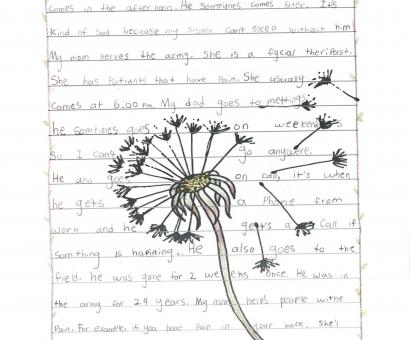 comes in the afternoon. He somtimes comes later. It's
kind of sad because my sister can't sleep without him
My mom serves the army. She is a fycial theripist.
She has Patiants that have Pain. She usually
comes at 6:00 pm. My dad goes to mettings
he somtimes goes on weekends.
So I cant go anywhere.
He also goes on call, it's when
he gets a Phone from
work and he gets a Call if
somthing is happining. He also goes to the
field. he was gone for 2 weeks once. He was in
the army for 24 years. My mom help's people withe
Pain. For example, if you have Pain in your back, She'll